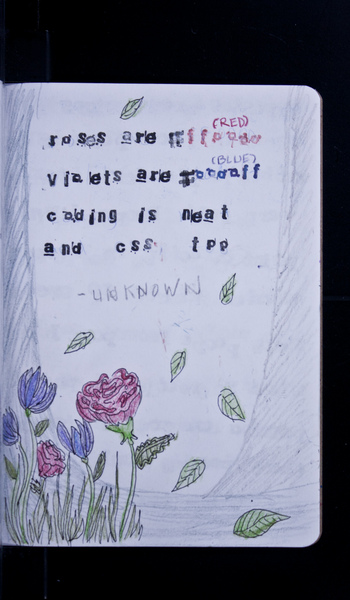 (RED)
roses are #ff0000
(BLUE)
violets are #0000ff
coding is neat
and css too
-UNKNOWN